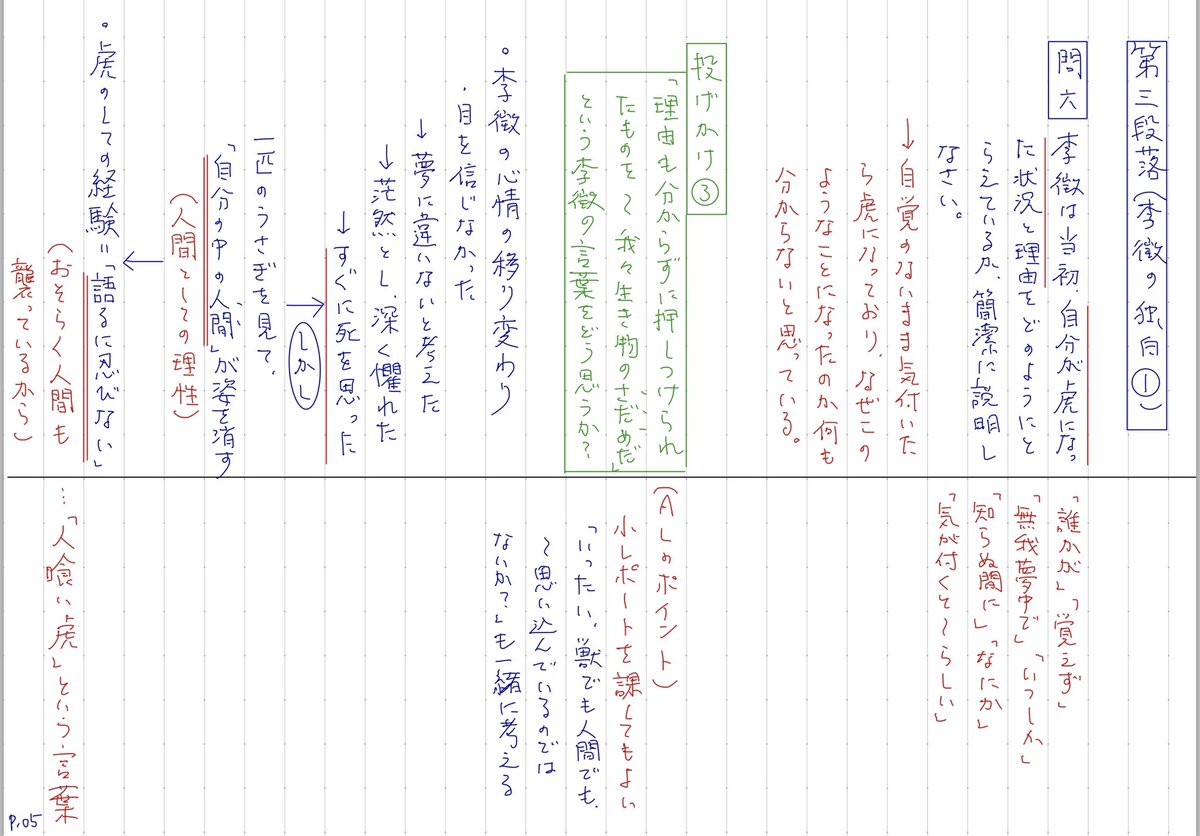 第三段落(李徴の独白①)
問六 李徴は当初、自分が虎になっ
た状況と理由をどのようにと
らえているか、簡潔に説明し
なさい。
→自覚のないまま気付いた
ら虎になっており、なぜこの
ようなことになったのか何も
分からないと思っている。
投げかけ③
「理由も分からずに押しつけられ
たものを〜我々生き物のさだめだ」
という李徴の言葉をどう思うか?
。李徴の心情の移り変わり
・目を信じなかった
→夢に違いないと考えた
→茫然とし、深く懼れた
→すぐに死を思った
しかし
一匹のうさぎを見て、
「自分の中の人間」が姿を消す
(人間としての理性)
。虎のしての経験=「語るに忍びない」
(おそらく人間も
襲っているから)
「誰かが」「覚えず」
「無我夢中で」「いつしか」
「知らぬ間に」「なにか」
「気が付くと〜らしい」
(ALのポイント)
小レポートを課してもよい
「いったい、獣でも人間でも、
〜思い込んでいるのでは
ないか?」も一緒に考える
…「人喰い虎」という言葉
P.05